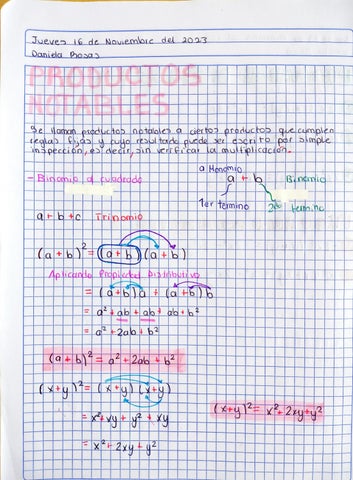 Jueves 16 de Noviembre del 2023
Daniela Rosas
PRODUCTOS
NOTABLES
Se llaman productos notables a ciertos productos que cumplen
reglas fijas y cuyo resultado puede ser escrito por simple
inspección, es decir, sin verificar la multiplicación.
a Monomio
- Binomio al cuadrado
a + b Binomio
1er termino 2do termino
a + b + c Trinomio
(a + b)² = (a + b) (a + b)
Aplicando Propiedad Distributiva
= (a + b) a + (a + b) b
= a² + ab + ab + b²
= a² + 2ab + b²
(a + b)² = a² + 2ab + b²
(x + y)² = (x + y) (x + y)
(x + y)² = x² + 2xy + y²
= x² + xy + y² + xy
= x² + 2xy + y²